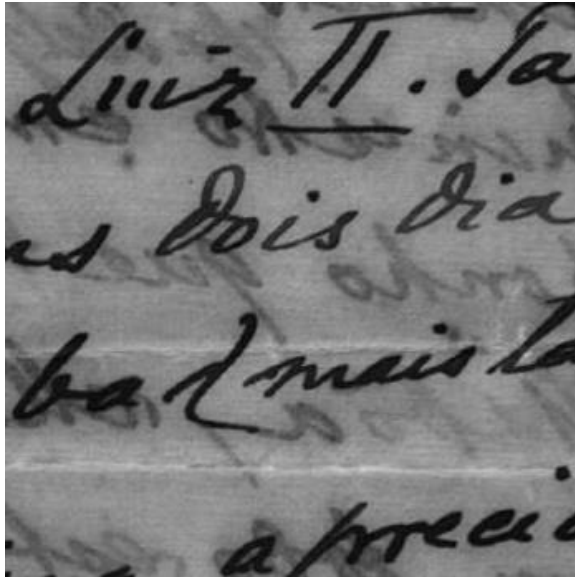 Luiz II. Ja
as dois dia
ba (mais ta
a precia